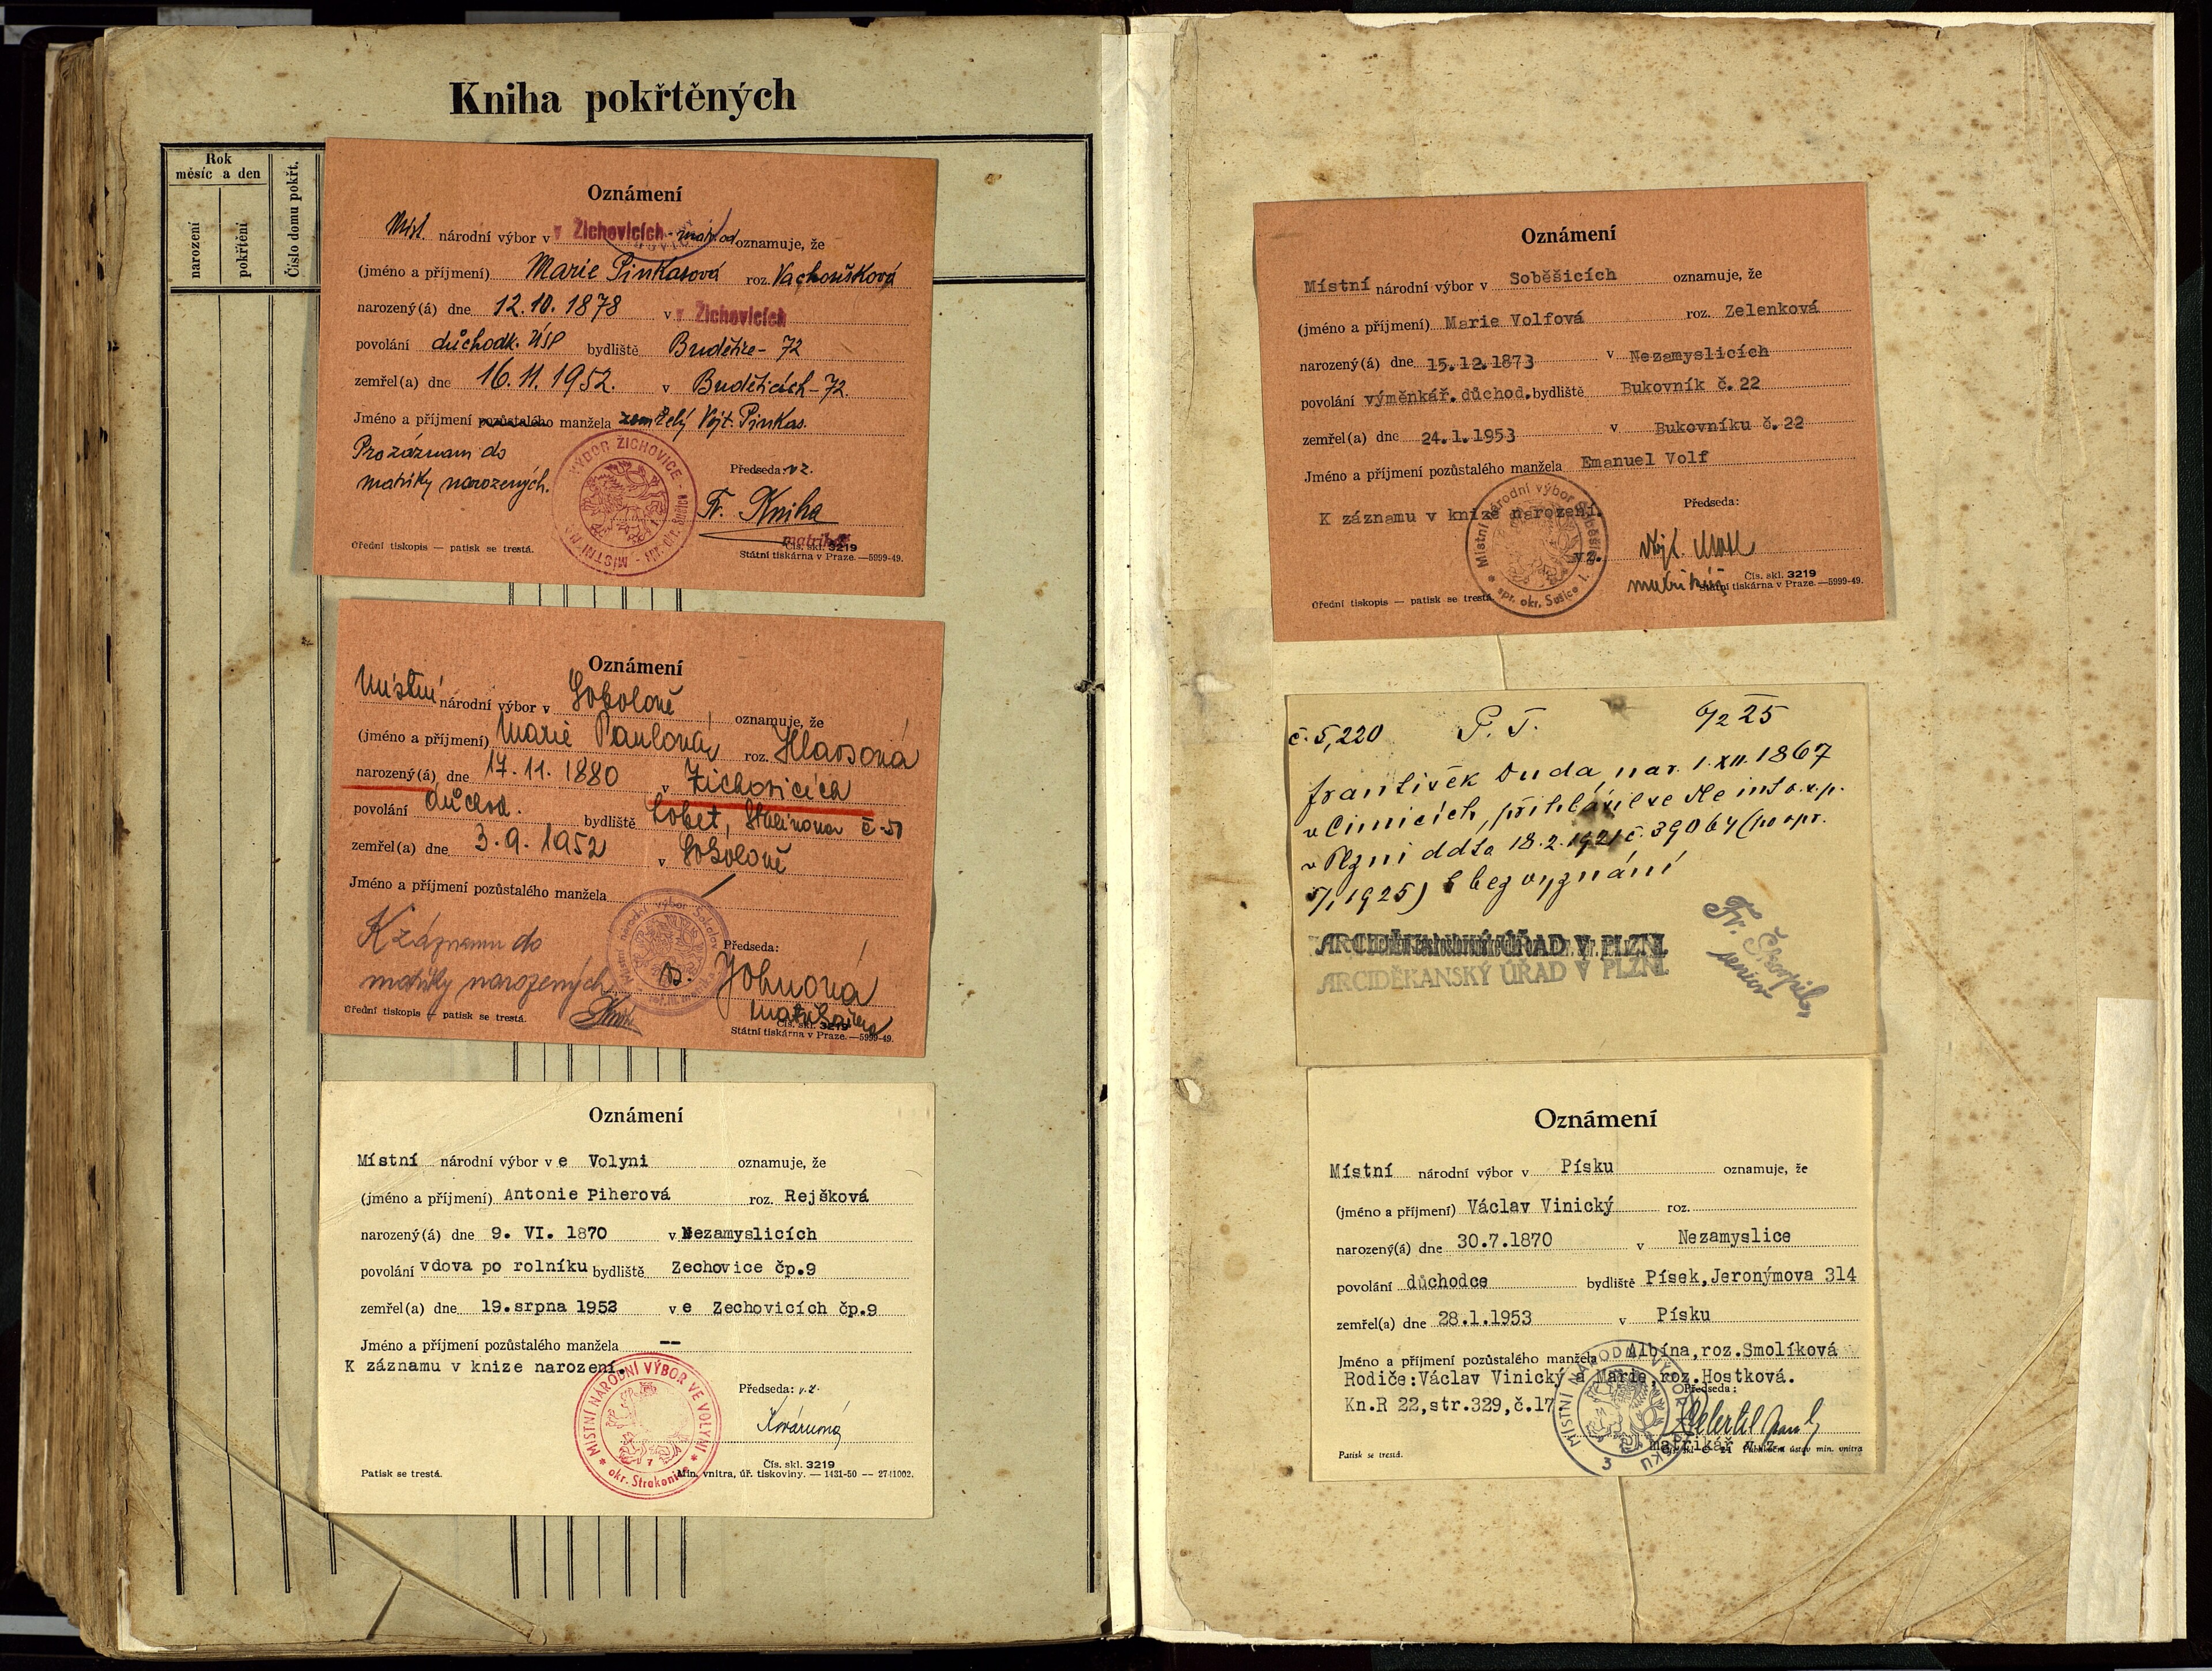 Kniha pokřtěných
Rok
měsíc a den
narození
pokřtění
Číslo domu pokřt.
Oznámení
Míst. národní výbor v v Žichovicích oznamuje, že
(jméno a příjmení) Marie Pinkasová roz. Vachoušková
narozený(á) dne 12.10.1878 v v Žichovicích
povolání důchodk. ÚSP bydliště Budětice - 72
zemřel(a) dne 16.11.1952. v Buděticích - 72.
Jméno a příjmení pozůstalého manžela zemřelý Vojt. Pinkas.
Pro záznam do
matriky narozených.
VÝBOR ŽICHOVICE
MÍSTNÍ
Předseda: v z.
Fr. Kniha
matrikář
Úřední tiskopis — patisk se trestá.
Čís. skl. 3219
Státní tiskárna v Praze. —5999-49.
Oznámení
Místní národní výbor v Sokolově oznamuje, že
(jméno a příjmení) Marie Pavlová roz. Hlavsová
narozený(á) dne 17.11.1880 v Žichovicích
povolání důchod. bydliště Loket, Stalinova č 51
zemřel(a) dne 3.9.1952 v Sokolově
Jméno a příjmení pozůstalého manžela
K záznamu do
matriky narozených
Místní národní výbor Sokolov
Předseda:
Johnová
matrikářka
Úřední tiskopis — patisk se trestá.
Čís. skl. 3219
Státní tiskárna v Praze.—5999-49.
Oznámení
Místní národní výbor v e Volyni oznamuje, že
(jméno a příjmení) Antonie Piherová roz. Rejšková
narozený(á) dne 9. VI. 1870 v Nezamyslicích
povolání vdova po rolníku bydliště Zechovice čp.9
zemřel(a) dne 19.srpna 1953 v e Zechovicích čp.9
Jméno a příjmení pozůstalého manžela --
K záznamu v knize narození.
MÍSTNÍ NÁRODNÍ VÝBOR VE VOLYNI
7
okr. Strakonice
Předseda: v.z.
Patisk se trestá.
Čís. skl. 3219
Min. vnitra, úř. tiskoviny. — 1431-50 — 2741002.
Oznámení
Místní národní výbor v Soběšicích oznamuje, že
(jméno a příjmení) Marie Volfová roz. Zelenková
narozený(á) dne 15.12.1873 v Nezamyslicích
povolání výměnkář.důchod. bydliště Bukovník č.22
zemřel(a) dne 24.1.1953 v Bukovníku č.22
Jméno a příjmení pozůstalého manžela Emanuel Volf
K záznamu v knize narození.
Místní národní výbor Soběšice
spr. okr. Sušice
Předseda:
vz.
matrikář
Úřední tiskopis — patisk se trestá.
Čís. skl. 3219
Státní tiskárna v Praze.—5999-49.
č. 5,220 P. T. 6/2 25
František Duda, nar. 1.XII.1867
v Čimicích, přihlásil se
v Plzni ddto 18.2.1921 č. 39064 (po opr.
5/1 1925) bez vyznání
ARCIDĚKANSKÝ ÚŘAD V PLZNI.
ARCIDĚKANSKÝ ÚŘAD V PLZNI.
Fr. Škorpil
senior
Oznámení
Místní národní výbor v Písku oznamuje, že
(jméno a příjmení) Václav Vinický roz.
narozený(á) dne 30.7.1870 v Nezamyslice
povolání důchodce bydliště Písek,Jeronýmova 314
zemřel(a) dne 28.1.1953 v Písku
Jméno a příjmení pozůstalého manžela Albína,roz.Smolíková
Rodiče:Václav Vinický a Marie,roz.Hostková.
Kn.R 22,str.329,č.17
MÍSTNÍ NÁRODNÍ VÝBOR V PÍSKU
3
Předseda:
matrikář v.z.
Patisk se trestá.